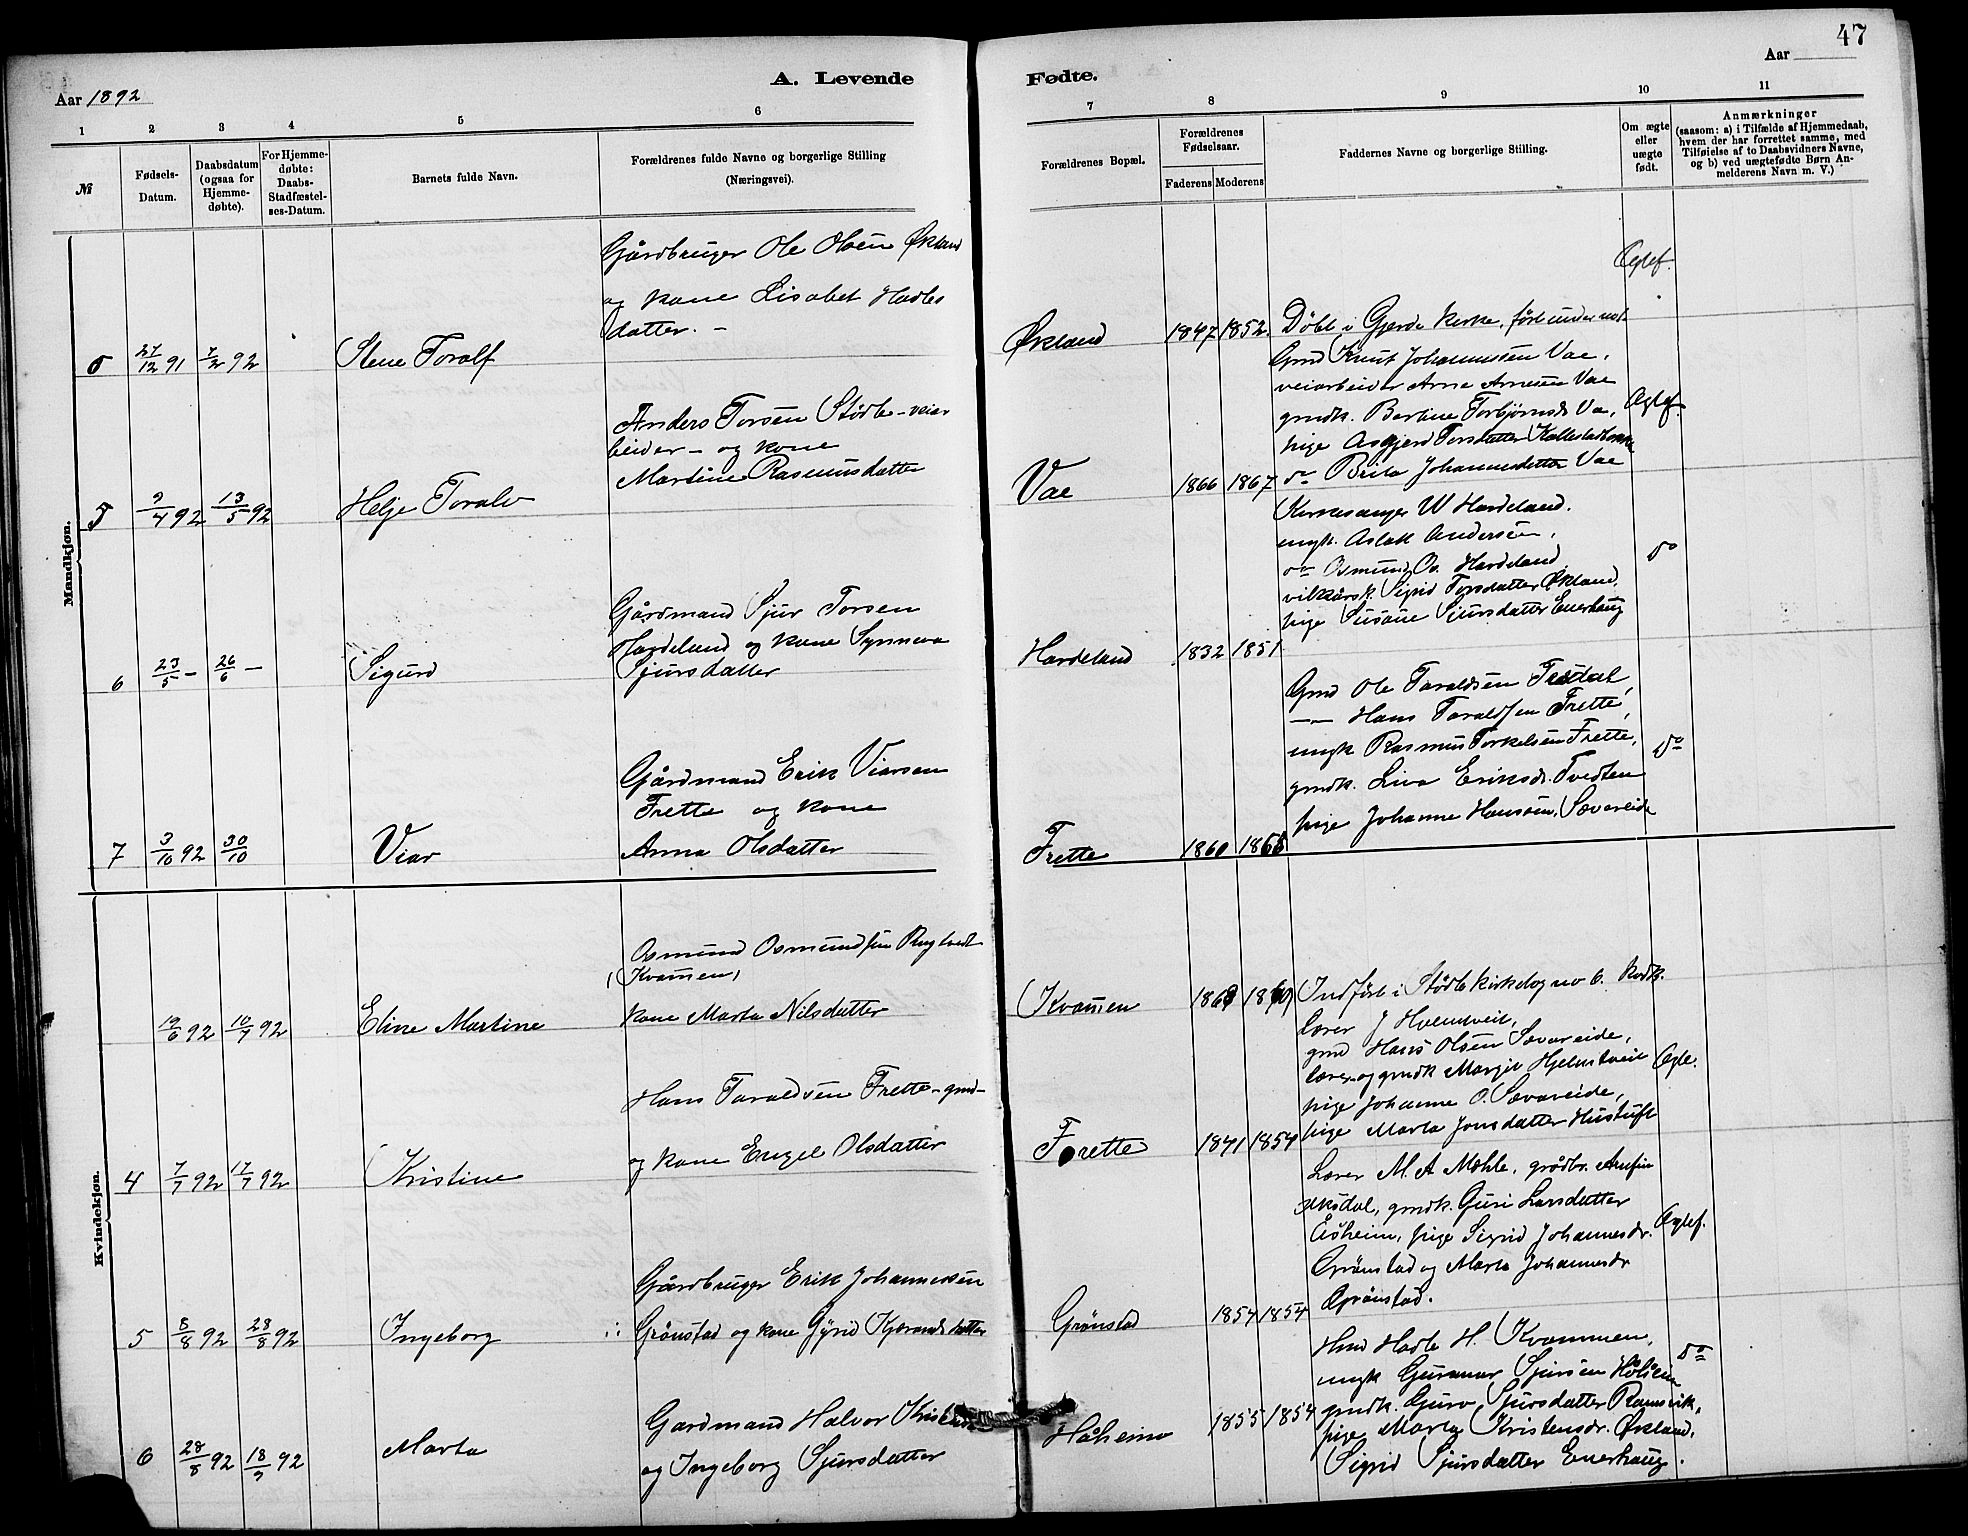 47
A. Levende Fødte.
Aar 1892
Aar
1 2 3 4 5 6 7 8 9 10 11
№
Fødsels-
Datum.
Daabsdatum
(ogsaa for
Hjemme-
døbte).
For Hjemme-
døbte:
Daabs-
Stadfæstel-
ses-Datum.
Barnets fulde Navn.
Forældrenes fulde Navne og borgerlige Stilling
(Næringsvei).
Forældrenes Bopæl.
Forældrenes
Fødselsaar.
Faderens Moderens
Faddernes Navne og borgerlige Stilling.
Om ægte
eller
uægte
født.
Anmærkninger
(saasom: a) i Tilfælde af Hjemmedaab,
hvem der har forrettet samme, med
Tilføielse af to Daabsvidners Navne,
og b) ved uægtefødte Børn An-
melderens Navn m. V.)
Mandkjøn.
Gårdbruger Ole Olsen Økland
og kone Lisabet Hadles
datter. -
27/12 91 7/2 92 Stene Toralf
Økland 1847 1852.
Døbt i Gjerde kirke,ført under
Ægtef.
Anders Torsen Stødle - veiar
beider - og kone
Martine Rasmusdatter
5 9/4 92 13/5 92 Helje Toralv
Vae 1866 1867
Gmd Knut Johannessen Vae,
veiarbeider Arne Arnesen Vae
gmdk. Bertine Torbjørnsd. Vae,
pige Asgjerd Torsdatter
do Brita Johannesdatter Vae
Ægtef.
Gårdmand Sjur Torsen
Hardeland og kone Synneva
Sjursdatter
6 23/5 - 26/6 - Sigurd
Hardeland 1832 1851
Kirkesanger W Hardeland.
ungk. Aslak Andersen,
do Osmund Os. Hardeland
vilkårsk. Sigrid Torsdatter Økland,
pige Susane Sjursdatter Enerhaug
do
Gårdmand Erik Viarsen
Frette og kone
Anna Olsdatter
7 3/10 92 30/10 Viar
Frette 1860
Gmd Ole Taraldsen
— Hans Taraldsen Frette,
ungk Rasmus Torkelsen Frette,
gmdk. Liva Eriksd. Tvedten
pige Johanne Hanssen, Sævareide
do
Kvindekjøn.
Osmund Osmundsen
Kvamen,
kone Marta Nilsdatter
19/6 92 10/7 92 Eline Martine
Kvamen
Indført i Stødle kirkebog no 6.
Hans Taraldsen Frette - gmd -
og kone Engel Olsdatter
4 7/7 92 17/7 92 Kristine
Frette 1841 1854
Lærer J Hjelmtveit,
gmd Hans Olsen Sævareide,
lærer- og gmdk Margit Hjelmtveit
pige Johanne O. Sævareide,
pige Marta Jonsdatter Hustuft
Ægte.
Gårdbruger Erik Johannessen
Grönstad og kone Gyrid Kjærandsdatter
5 8/8 92 28/8 92 Ingeborg
Grønstad 1854 1854
Lærer M. A Mæhle, grdbr. Arnfin
Øksdal, gmdk. Guri Larsdatter
Åsheim, pige Sigrid Johannesdr.
Grönstad og Marta Johannesdr
Grönstad.
Ægtef.
Gardmand Halvor
og Ingeborg Sjursdatter
6 28/8 92 18/9 92 Marta
Håheim 1855 1854
Hmd Hadle H. Kvammen,
ungk Gunnar Sjursen
gmdk. Guro Sjursdatter Ramsvik,
pige Marta Kristensdr. Økland,
Sigrid Sjursdatter Enerhaug.
do